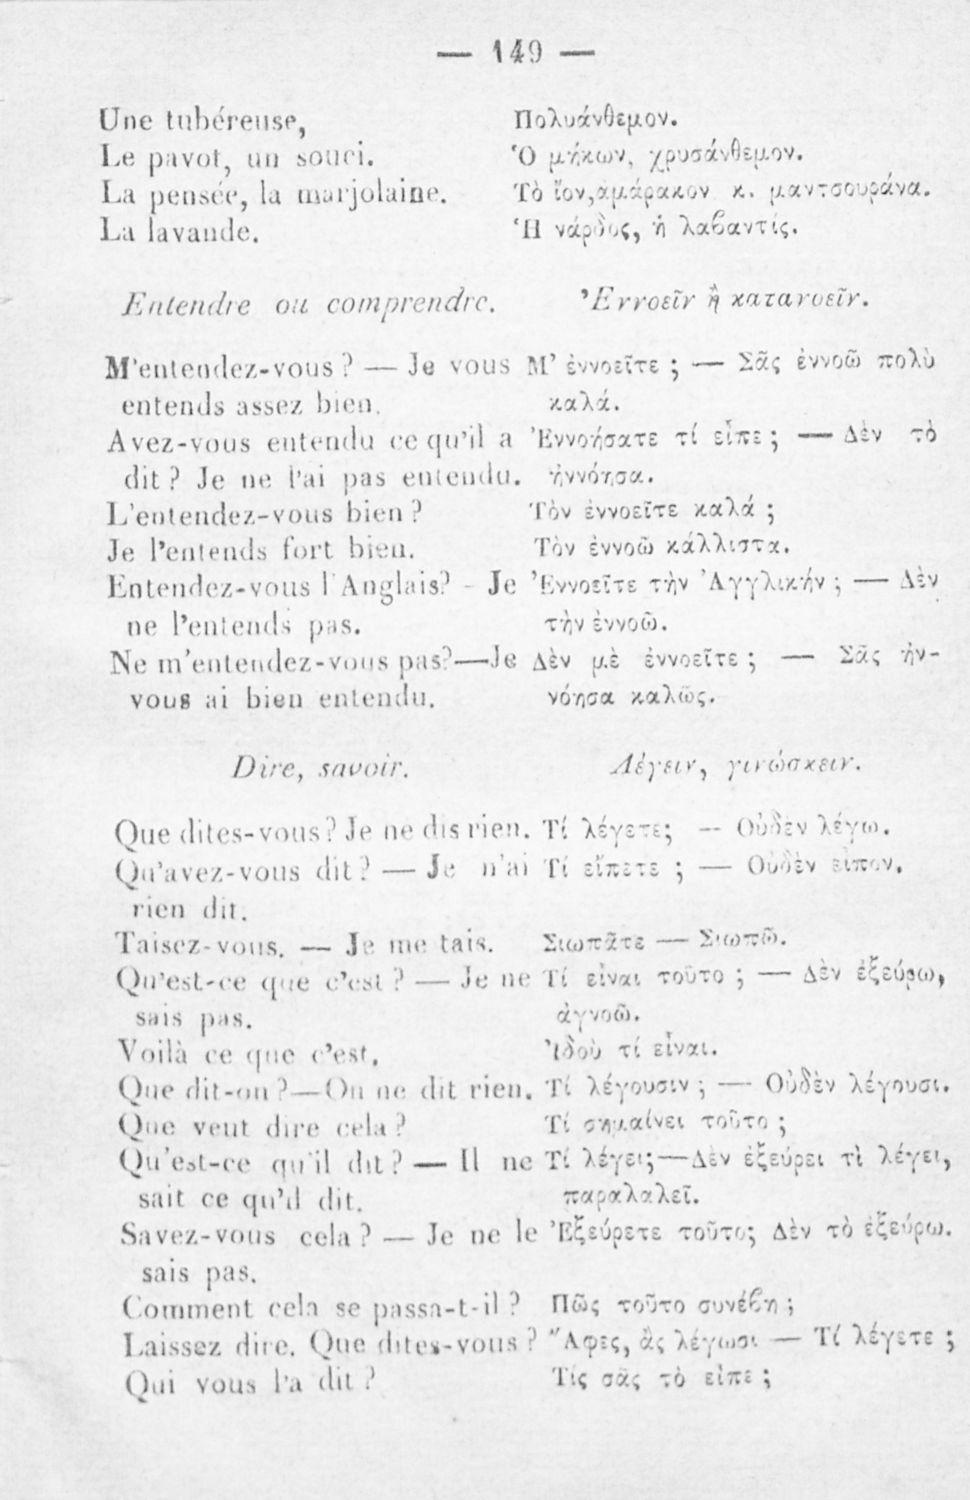 — 149 —
Une tubéreuse, Πολυάνθεμον.
Le pavot, un souci. Ὁ μήκων, χρυσάνθεμον.
La pensée, la marjolaine. Τὸ ἴον, ἀμάρακον κ. μαντσουράνα.
La lavande. Ἡ νάρδος, ἡ λαϐαντίς.
Entendre ou comprendre. Ἐννοεῖν ἢ κατανοεῖν.
M'entendez-vous ? — Je vous Μ' ἐννοεῖτε ; — Σᾶς ἐννοῶ πολὺ
entends assez bien. καλά.
Avez-vous entendu ce qu'il a Ἐννοήσατε τί εἶπε ; — Δὲν τὸ
dit ? Je ne l'ai pas entendu. ἠννόησα.
L'entendez-vous bien ? Τὸν ἐννοεῖτε καλά ;
Je l'entends fort bien. Τὸν ἐννοῶ κάλλιστα.
Entendez-vous l'Anglais? - Je Ἐννοεῖτε τὴν Ἀγγλικήν ; — Δὲν
ne l'entends pas. τὴν ἐννοῶ.
Ne m'entendez-vous pas?—Je Δὲν μὲ ἐννοεῖτε ; — Σᾶς ἠν-
vous ai bien entendu. νόησα καλῶς.
Dire, savoir. Λέγειν, γινώσκειν.
Que dites-vous? Je ne dis rien. Τί λέγετε; — Οὐδὲν λέγω.
Qu'avez-vous dit ? — Je n'ai Τί εἴπετε ; — Οὐδὲν εἶπον.
rien dit.
Taisez-vous. — Je me tais. Σιωπᾶτε — Σιωπῶ.
Qu'est-ce que c'est ? — Je ne Τί εἶναι τοῦτο ; — Δὲν ἐξεύρω,
sais pas. ἀγνοῶ.
Voilà ce que c'est. Ἰδοὺ τί εἶναι.
Que dit-on ?—On ne dit rien. Τί λέγουσιν ; — Οὐδὲν λέγουσι.
Que veut dire cela ? Τί σημαίνει τοῦτο ;
Qu'est-ce qu'il dit ? — Il ne Τί λέγει;—Δὲν ἐξεύρει τὶ λέγει,
sait ce qu'il dit. παραλαλεῖ.
Savez-vous cela ? — Je ne le Ἐξεύρετε τοῦτο; Δὲν τὸ ἐξεύρω.
sais pas.
Comment cela se passa-t-il ? Πῶς τοῦτο συνέϐη ;
Laissez dire. Que dites-vous ? Ἄφες, ἂς λέγωσι — Τί λέγετε ;
Qui vous l'a dit ? Τίς σᾶς τὸ εἶπε ;